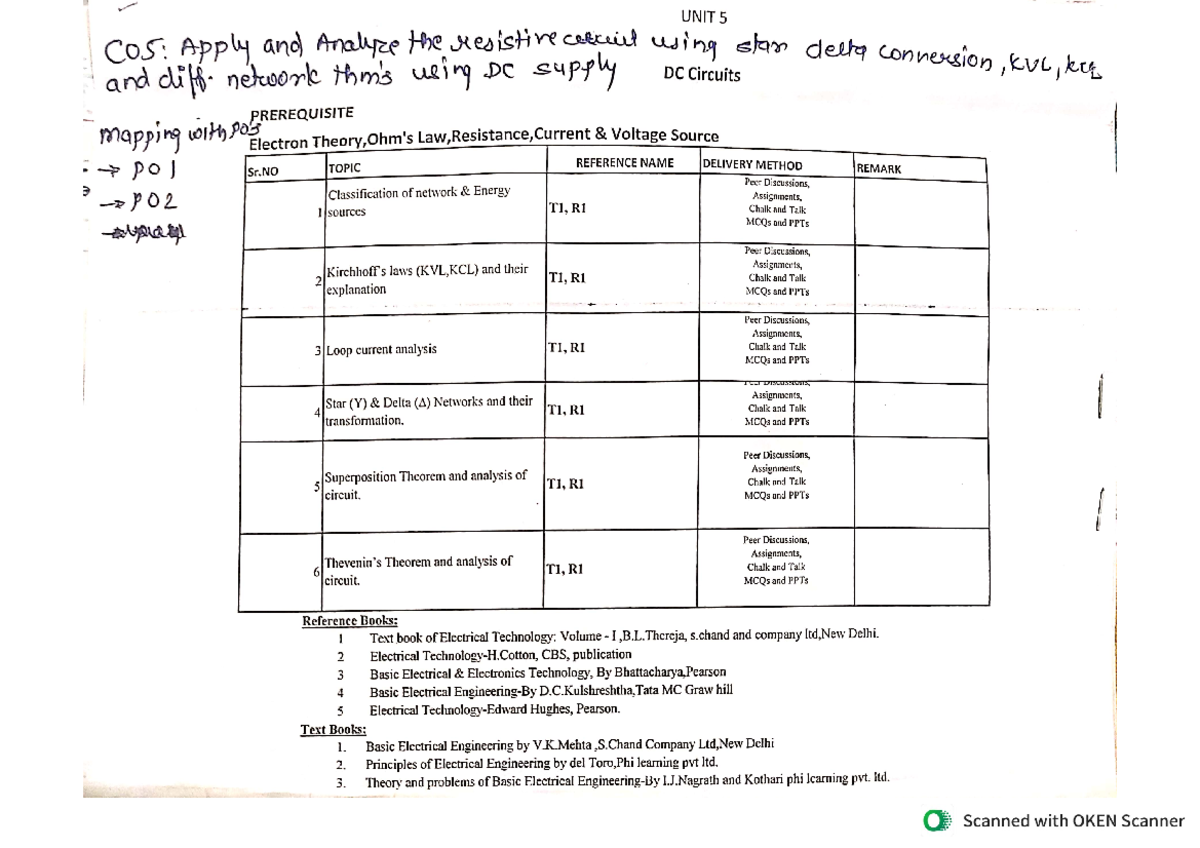 UNIT 5
CO5: Apply and Analyze the resistive circuit using star delta conversion, KVL, KCL
and diff. network thm's using DC supply
DC Circuits
PREREQUISITE
mapping with PO's
Electron Theory,Ohm's Law,Resistance,Current & Voltage Source
→ PO1
→ PO2
Sr.NO TOPIC REFERENCE NAME DELIVERY METHOD REMARK
1 Classification of network & Energy
sources
T1, R1
Peer Discussions,
Assignments,
Chalk and Talk
MCQs and PPTs
2 Kirchhoff's laws (KVL,KCL) and their
explanation
T1, R1
Peer Discussions,
Assignments,
Chalk and Talk
MCQs and PPTs
3 Loop current analysis
T1, R1
Peer Discussions,
Assignments,
Chalk and Talk
MCQs and PPTs
4 Star (Y) & Delta (Δ) Networks and their
transformation.
T1, R1
Peer Discussions,
Assignments,
Chalk and Talk
MCQs and PPTs
5 Superposition Theorem and analysis of
circuit.
T1, R1
Peer Discussions,
Assignments,
Chalk and Talk
MCQs and PPTs
6 Thevenin's Theorem and analysis of
circuit.
T1, R1
Peer Discussions,
Assignments,
Chalk and Talk
MCQs and PPTs
Reference Books:
1 Text book of Electrical Technology: Volume - I ,B.L.Thereja, s.chand and company ltd,New Delhi.
2 Electrical Technology-H.Cotton, CBS, publication
3 Basic Electrical & Electronics Technology, By Bhattacharya,Pearson
4 Basic Electrical Engineering-By D.C.Kulshreshtha,Tata MC Graw hill
5 Electrical Technology-Edward Hughes, Pearson.
Text Books:
1. Basic Electrical Engineering by V.K.Mehta ,S.Chand Company Ltd,New Delhi
2. Principles of Electrical Engineering by del Toro,Phi learning pvt ltd.
3. Theory and problems of Basic Electrical Engineering-By I.J.Nagrath and Kothari phi learning pvt. ltd.
Scanned with OKEN Scanner